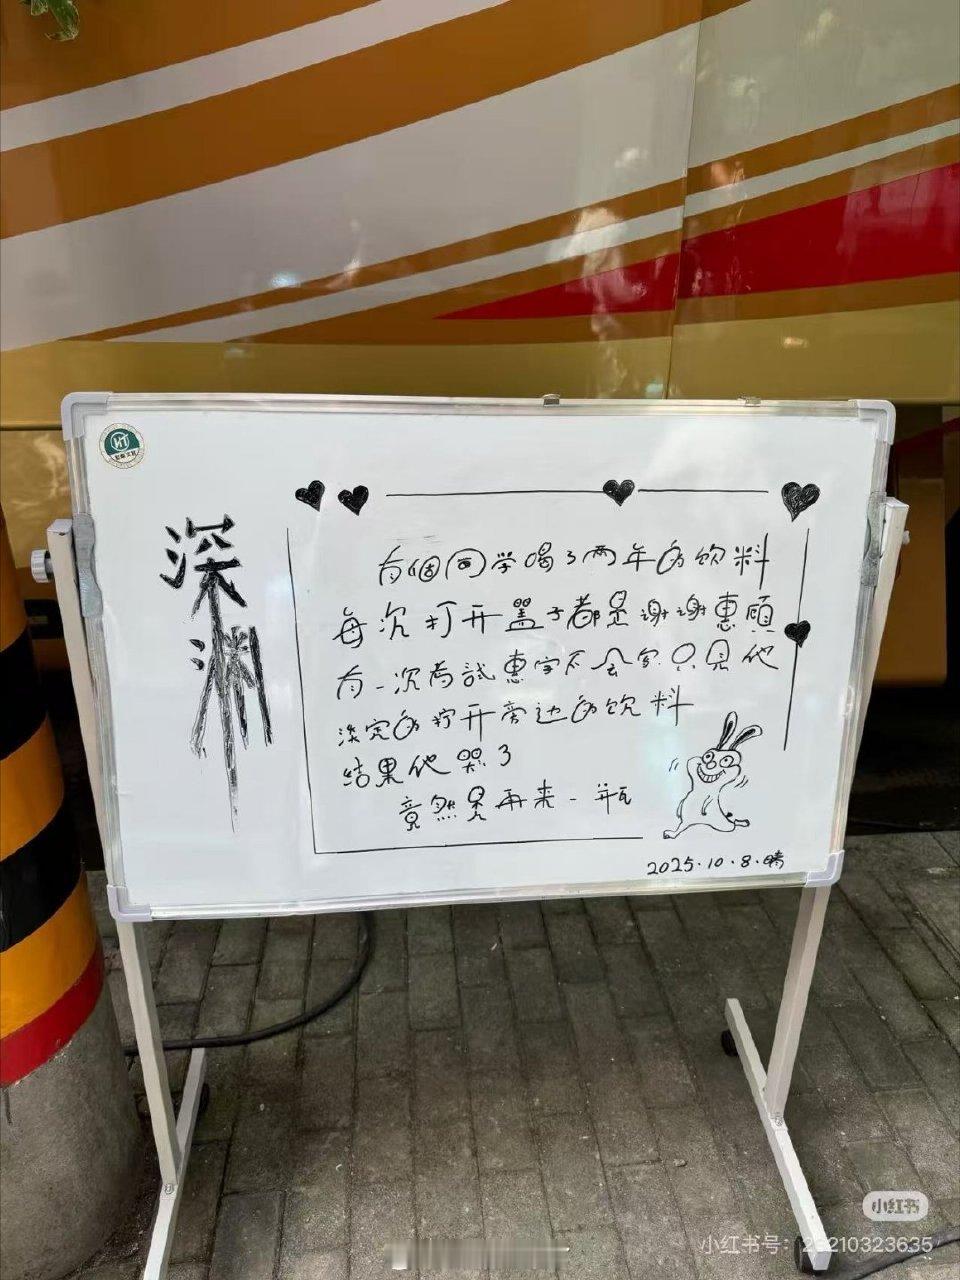 深渊
有個同学喝了两年的饮料
每次打开盖子都是谢谢惠顾
有一次考試惠字不会写只见他
淡定的拧开旁边的饮料
结果他哭了
竟然是再来一瓶
2025.10.8.晴
小红书
小红书号：23210323635